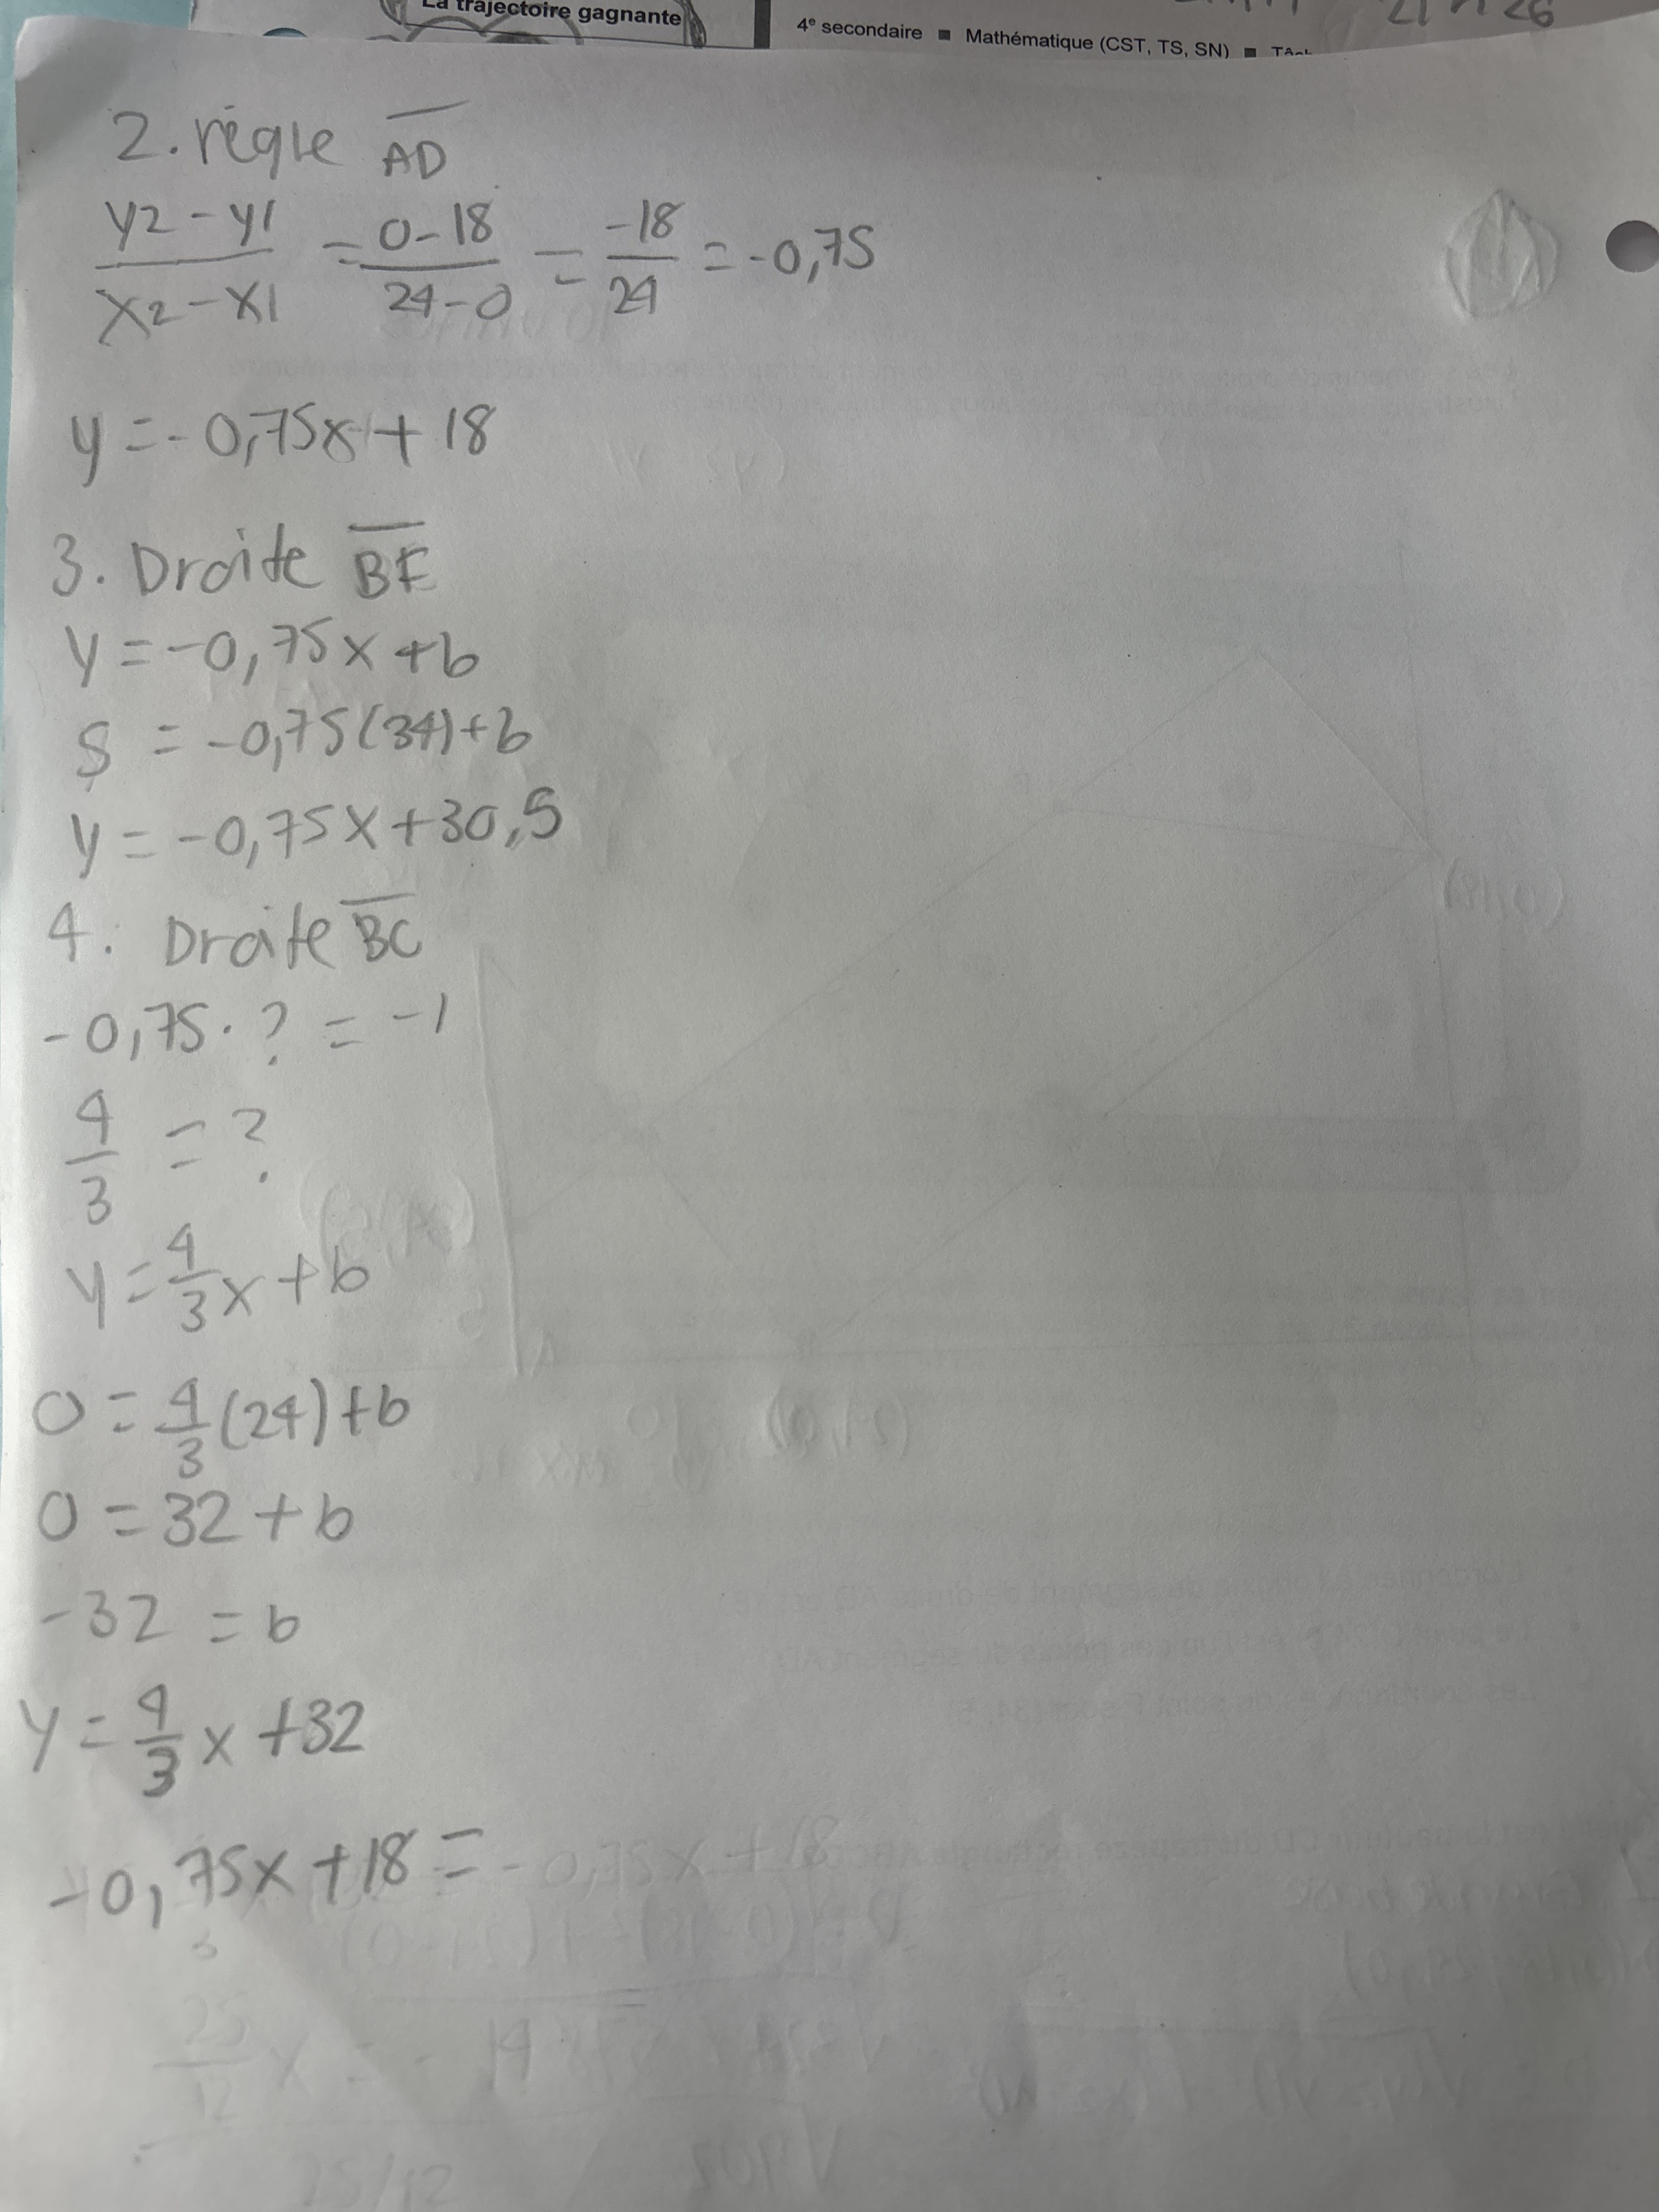 La trajectoire gagnante
4e secondaire ■ Mathématique (CST, TS, SN) ■
2. règle AD
y2 - y1 / x2 - x1 = 0-18 / 24-0 = -18 / 24 = -0,75
y = -0,75x + 18
3. Droite BE
y = -0,75x + b
5 = -0,75(34) + b
y = -0,75x + 30,5
4. Droite BC
-0,75 · ? = -1
4/3 = ?
y = 4/3 x + b
0 = 4/3 (24) + b
0 = 32 + b
-32 = b
y = 4/3 x + 32
-0,75x + 18 =